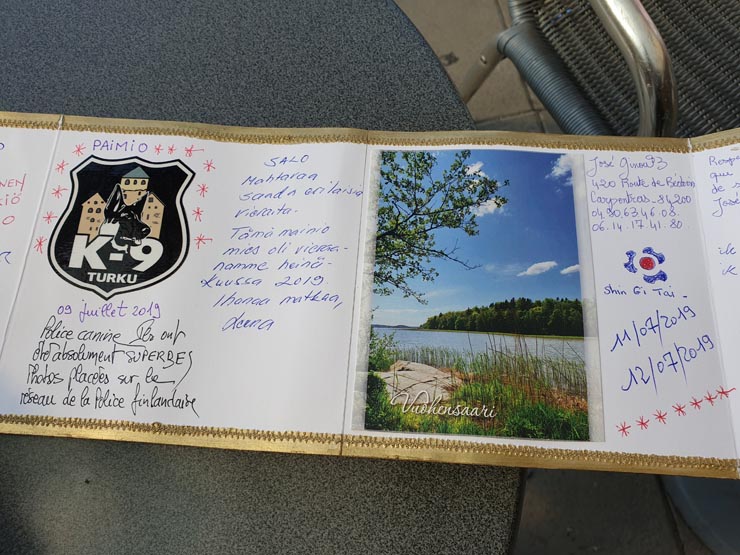 NEN
IÖ
PAIMIO
K-9
TURKU
09 juillet 2019
Police canine. Ils ont
été absolument SUPERBES
Photos placées sur le
réseau de la Police finlandaise
SALO
Mahtavaa
saada erilaisia
vieraita.
Tämä mainio
mies oli vieraa-
namme heinä-
kuussa 2019.
Ihanaa matkaa,
Leena
Vuohensaari
José
420 Route de
Carpentras - 84200
04.90.63.46.08.
06.14.17.41.80.
Shin Gi Tai -
11/07/2019
12/07/2019
que
de s
José
ik
ik